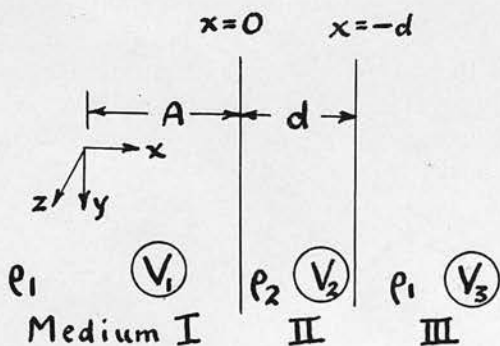 x=0 x=-d
A d
x
z y
ρ₁ V₁ ρ₂ V₂ ρ₁ V₃
Medium I II III